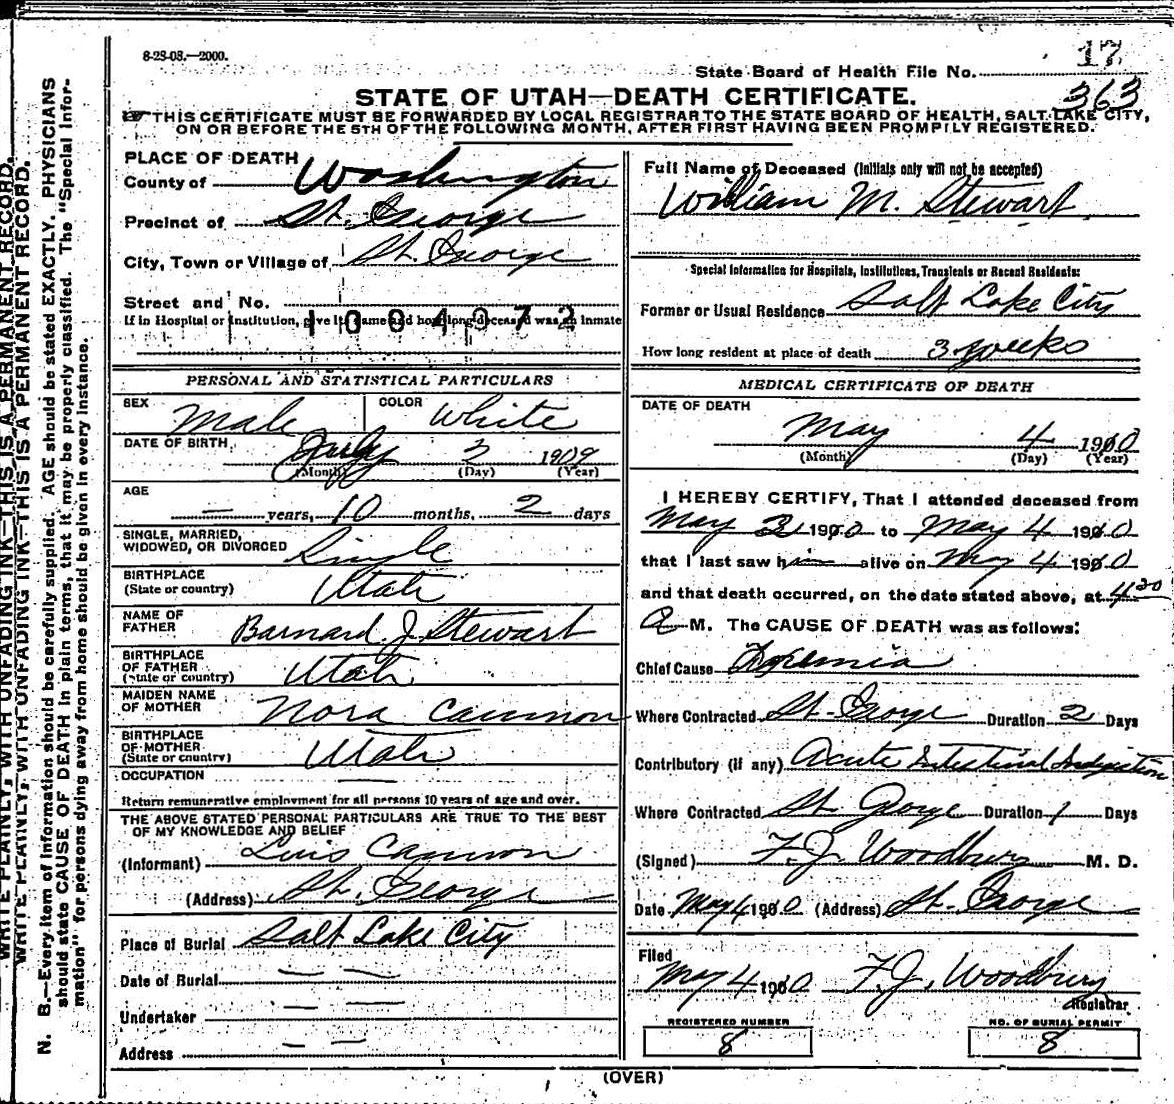 8-28-08.—2000.
17
State Board of Health File No.
363
STATE OF UTAH—DEATH CERTIFICATE.
THIS CERTIFICATE MUST BE FORWARDED BY LOCAL REGISTRAR TO THE STATE BOARD OF HEALTH, SALT LAKE CITY,
ON OR BEFORE THE 5TH OF THE FOLLOWING MONTH, AFTER FIRST HAVING BEEN PROMPTLY REGISTERED.
PLACE OF DEATH
County of Washington
Precinct of St. George
City, Town or Village of St. George
Street and No.
If in Hospital or Institution, give its name and how long deceased was an inmate
1004972
PERSONAL AND STATISTICAL PARTICULARS
SEX Male
COLOR White
DATE OF BIRTH, July 3 1909
(Month) (Day) (Year)
AGE
— years, 10 months, 2 days
SINGLE, MARRIED,
WIDOWED, OR DIVORCED Single
BIRTHPLACE
(State or country) Utah
NAME OF
FATHER Barnard J. Stewart
BIRTHPLACE
OF FATHER
(State or country) Utah
MAIDEN NAME
OF MOTHER Nora Cannon
BIRTHPLACE
OF MOTHER
(State or country) Utah
OCCUPATION —
Return remunerative employment for all persons 10 years of age and over.
THE ABOVE STATED PERSONAL PARTICULARS ARE TRUE TO THE BEST
OF MY KNOWLEDGE AND BELIEF
(Informant) Luis Cannon
(Address) St. George
Place of Burial Salt Lake City
Date of Burial — —
Undertaker — —
Address — —
Full Name of Deceased (Initials only will not be accepted)
William M. Stewart
Special Information for Hospitals, Institutions, Transients or Recent Residents:
Former or Usual Residence Salt Lake City
How long resident at place of death 3 weeks
MEDICAL CERTIFICATE OF DEATH
DATE OF DEATH
May 4 1910
(Month) (Day) (Year)
I HEREBY CERTIFY, That I attended deceased from
May 3 1910 to May 4 1910
that I last saw him alive on May 4 1910
and that death occurred, on the date stated above, at 4 30
A M. The CAUSE OF DEATH was as follows:
Chief Cause Toxemia
Where Contracted St. George Duration 2 Days
Contributory (if any) Acute Intestinal Indigestion
Where Contracted St. George Duration 1 Days
(Signed) F. J. Woodbury M. D.
Date May 4 1910 (Address) St. George
Filed
May 4 1910 F. J. Woodbury
Registrar
REGISTERED NUMBER
8
NO. OF BURIAL PERMIT
8
(OVER)
WRITE PLAINLY, WITH UNFADING INK—THIS IS A PERMANENT RECORD.
WRITE PLAINLY, WITH UNFADING INK—THIS IS A PERMANENT RECORD.
N. B.—Every item of information should be carefully supplied. AGE should be stated EXACTLY. PHYSICIANS
should state CAUSE OF DEATH in plain terms, that it may be properly classified. The "Special Infor-
mation" for persons dying away from home should be given in every instance.